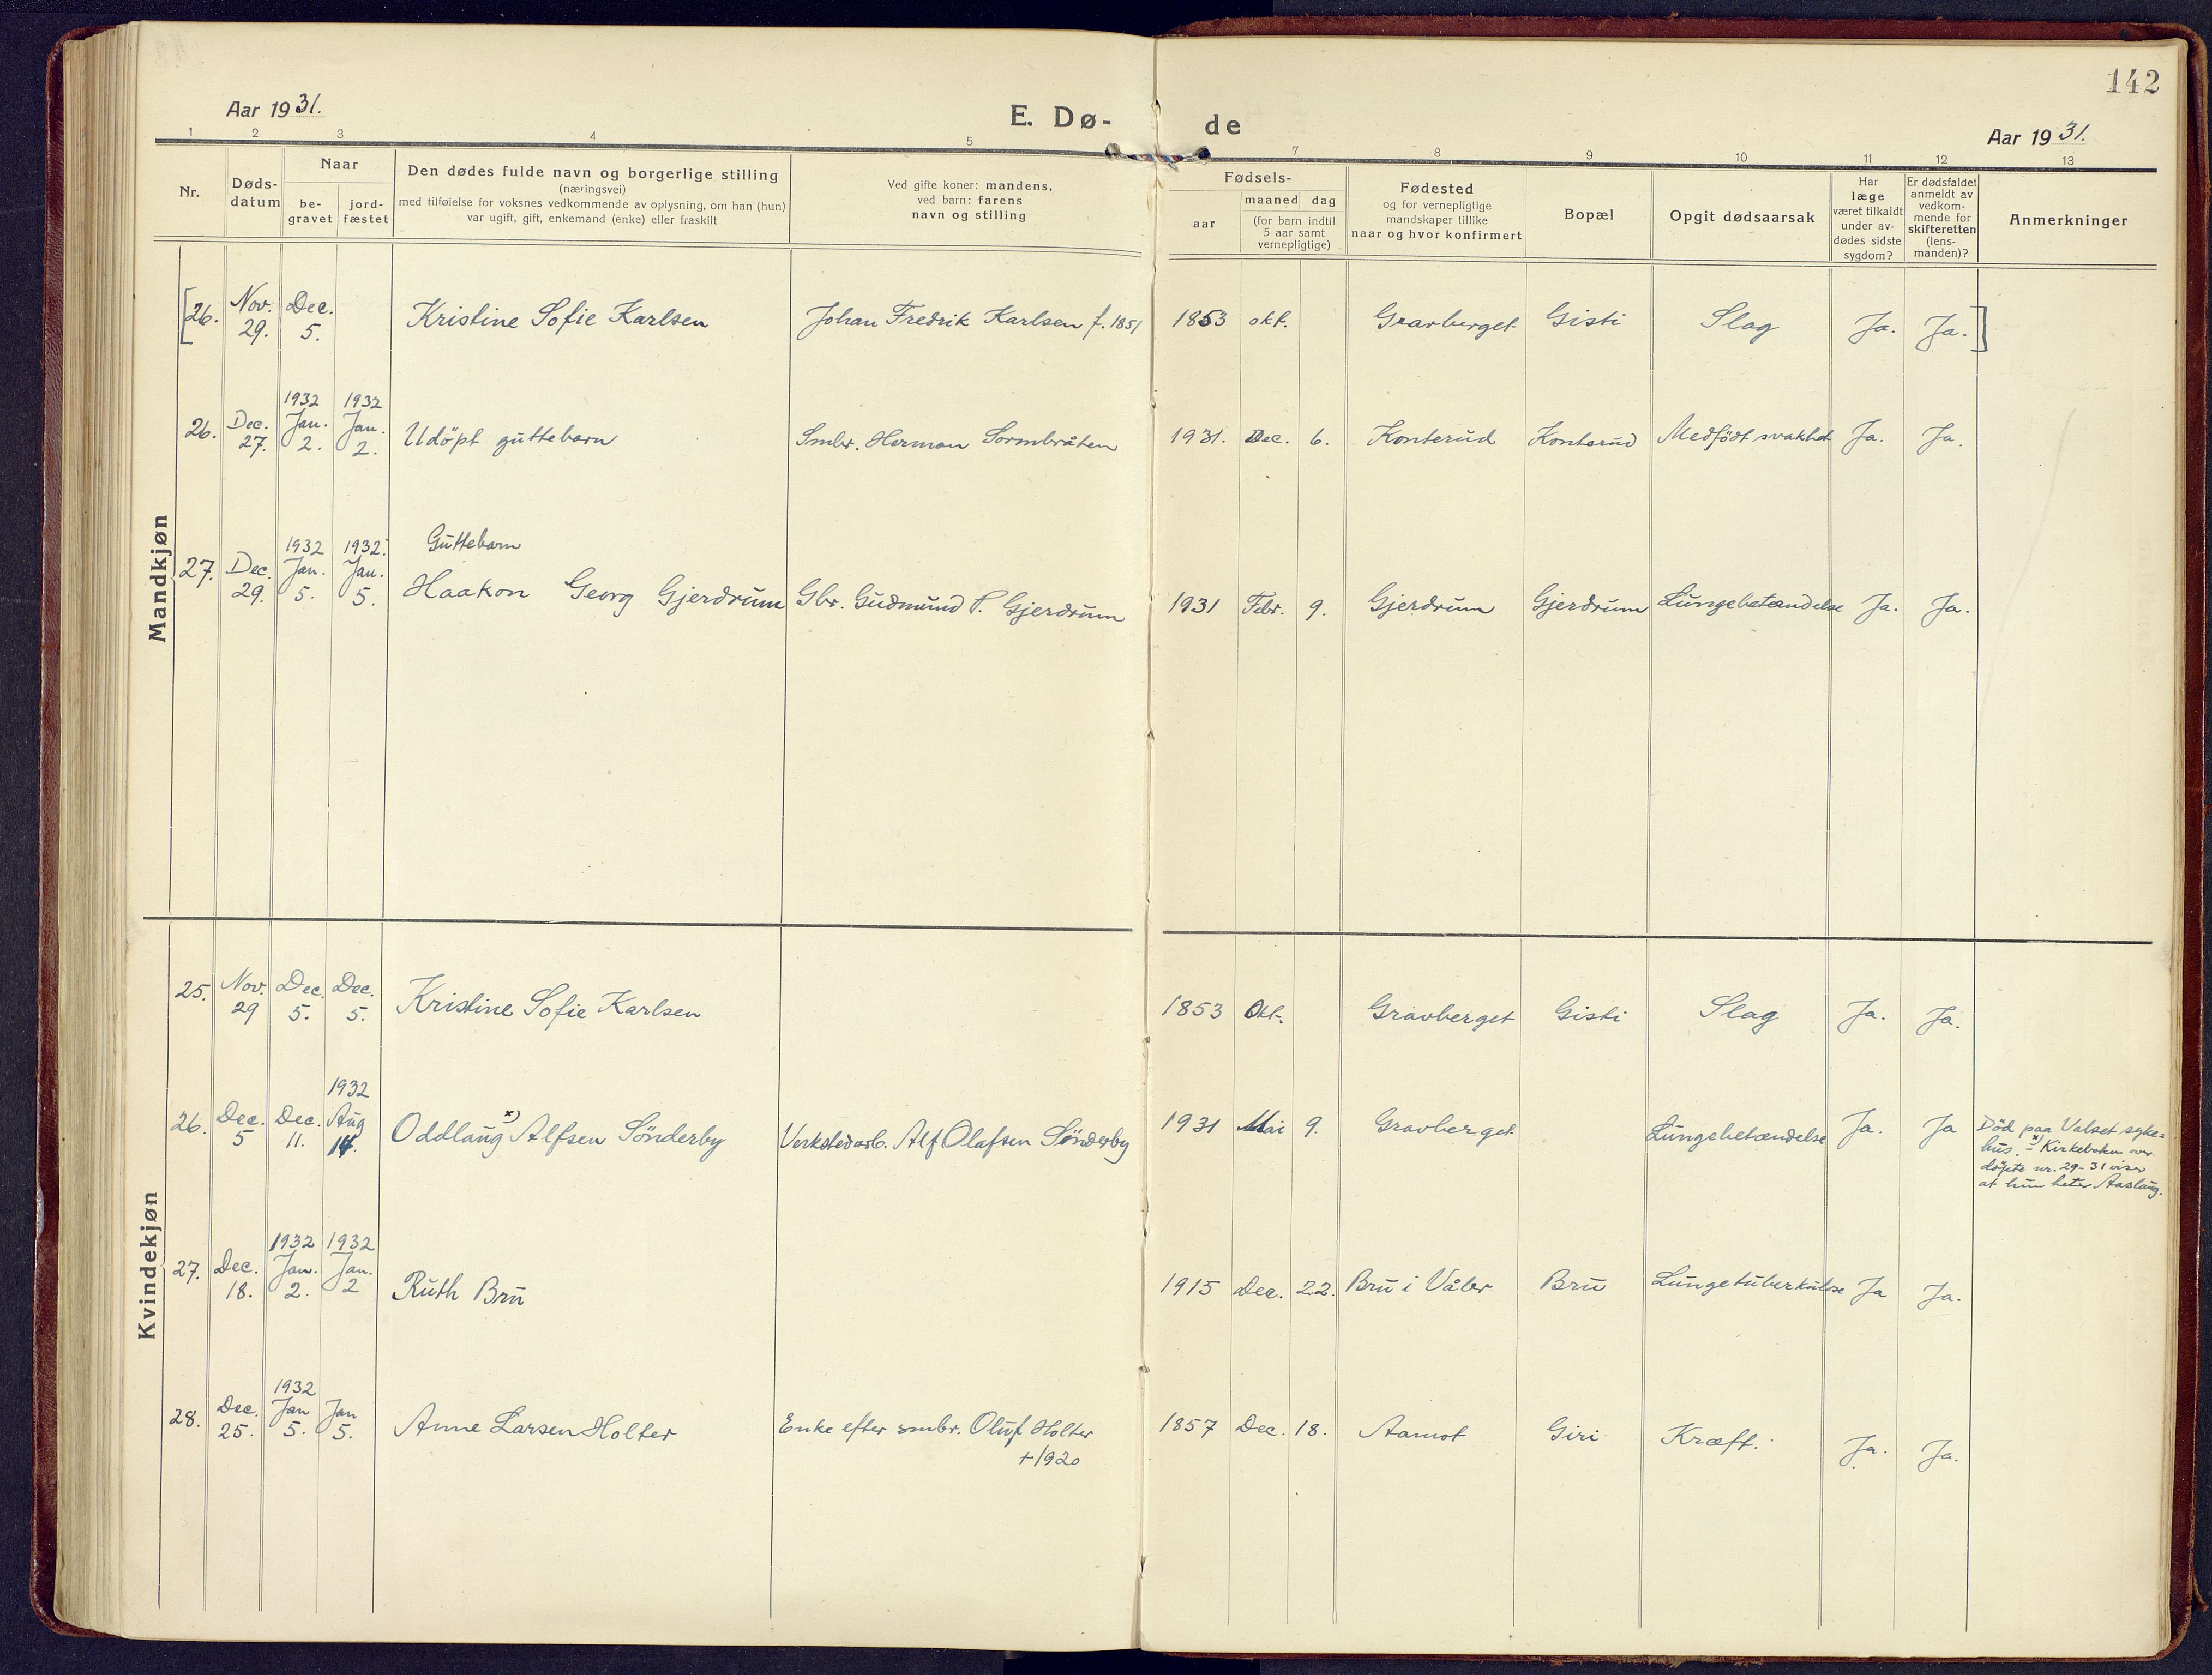 142
Aar 1931.
E. Dø-
de
Aar 1931.
1 2 3 4 5 7 8 9 10 11 12 13
Nr.
Døds-
datum
Naar
be-
gravet
jord-
fæstet
Den dødes fulde navn og borgerlige stilling
(næringsvei)
med tilføielse for voksnes vedkommende av oplysning, om han (hun)
var ugift, gift, enkemand (enke) eller fraskilt
Ved gifte koner: mandens,
ved barn: farens
navn og stilling
Fødsels-
aar
maaned dag
(for barn indtil
5 aar samt
vernepligtige)
Fødested
og for vernepligtige
mandskaper tillike
naar og hvor konfirmert
Bopæl
Opgit dødsaarsak
Har
læge
været tilkaldt
under av-
dødes sidste
sygdom?
Er dødsfaldet
anmeldt av
vedkom-
mende for
skifteretten
(lens-
manden)?
Anmerkninger
Mandkjøn
[26. Nov. 29. Dec. 5. Kristine Sofie Karlsen Johan Fredrik Karlsen f. 1851 1853 okt. Gravberget Gisti Slag Ja. Ja.]
26. Dec. 27. 1932 Jan. 2. 1932 Jan. 2. Udöpt guttebarn Smbr. Herman Sormbråten 1931. Dec. 6. Konterud Konterud Medfödt svakhet Ja. Ja.
Guttebarn
27. Dec. 29. 1932 Jan. 5. 1932. Jan. 5. Haakon Georg Gjerdrum Gbr. Gudmund P. Gjerdrum 1931 Febr. 9. Gjerdrum Gjerdrum Lungebetændelse Ja. Ja.
Kvindekjøn
25. Nov. 29 Dec. 5. Dec. 5. Kristine Sofie Karlsen 1853 Okt. Gravberget Gisti Slag Ja. Ja.
26. Dec. 5 Dec. 11. 1932 Aug 14. Oddlaug x) Alfsen Sönderby Verkstedarb. Alf Olafsen Sönderby 1931 Mai 9. Gravberget Lungebetændelse Ja. Ja
Död paa Valset syke=
hus. – x) Kirkeboken over
döpte nr. 29-31 viser
at hun heter Aaslaug.
27. Dec. 18. 1932 Jan. 2. 1932 Jan. 2 Ruth Bru 1915 Dec. 22. Bru i Våler Bru Lungetuberkulose Ja Ja.
28. Dec. 25. 1932 Jan 5. Jan 5. Anne Larsen Holter Enke efter smbr. Oluf Holter 1857 Dec. 18. Aamot Giri Kræft. Ja. Ja.
+ 1920